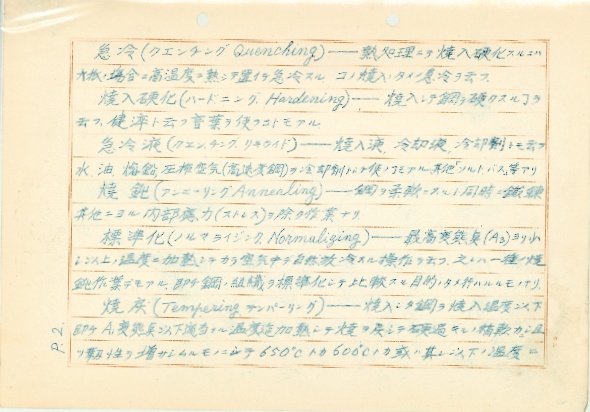 急冷(クエンチング Quenching)——熱処理ニテ焼入硬化スルニハ
大抵ノ場合ニ高温度ニ熱シテ置イテ急冷スル コノ焼入ノタメノ急冷ヲ云フ.
焼入硬化(ハードニング. Hardening)——焼入シテ鋼ヲ硬クスル
云フ. 健淬ト云フ言葉ヲ使フコトモアル.
急冷液(クエンチング. リキウイド)——焼入液. 冷却液. 冷却剤トモ云フ
水. 油. 熔鉛. 圧搾空気(高速度鋼)ヲ冷却剤トシテ使ノモアル 其他ソルトバス等アリ
焼鈍(アンニーリング Annealing)——鋼ヲ柔軟ニスルト同時ニ鍛錬
其他ニヨル内部應力(ストレス)ヲ除ク作業ナリ.
標準化(ノルマライジング. Normalizing)——最高変態点(A3)ヨリ
以上ノ温度ニ加熱シテカラ空気中デ自然放冷スル操作ヲ云フ. 之レハ一種ノ焼
鈍作業デモアル. 即チ鋼ノ組織ヲ標準化シテ比較スル目的ノタメ行ハルルモノナリ.
焼戻(Tempering テンパーリング)——焼入シタ鋼ヲ焼入温度以下
即チA1変態点以下適当ナル温度迄加熱シテ焼ヲ戻シテ硬過
靱性ヲ増サシムルモノニシテ 650°Cトカ 600°Cトカ或ハ其レ以下ノ温度ニ
P. 2.